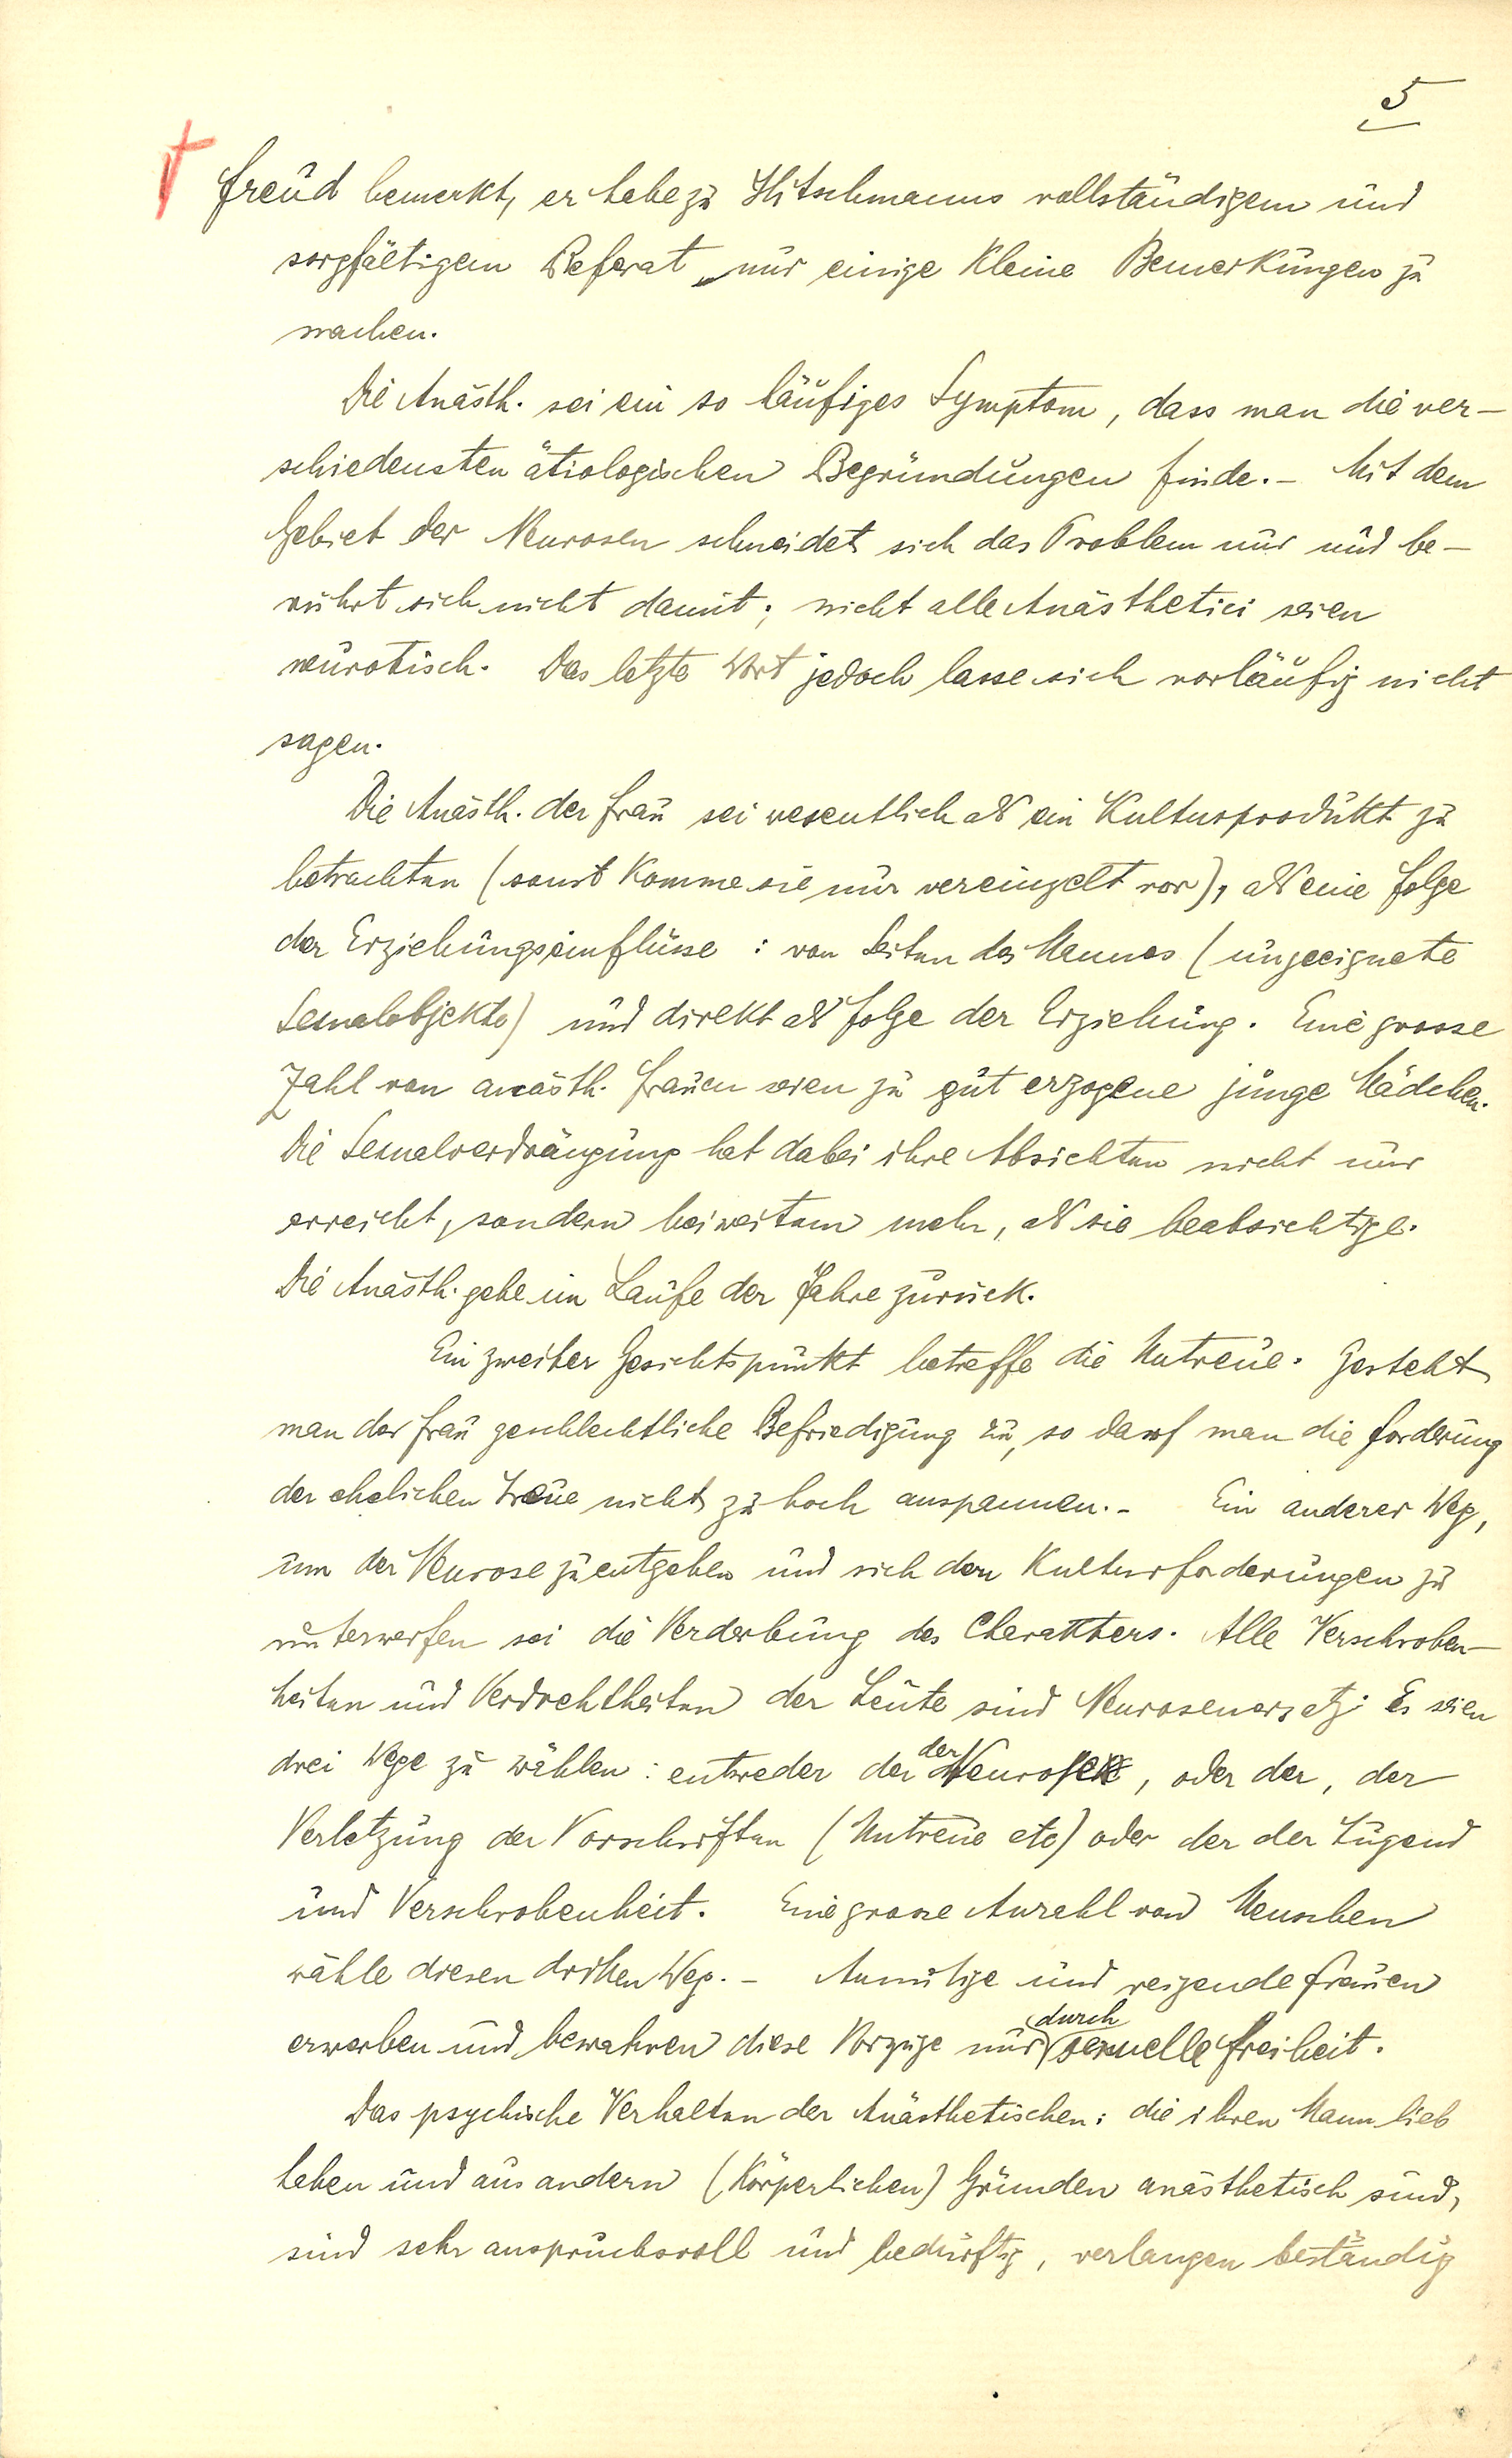 5
Freud bemerkt, er habe zu Hitschmanns vollständigem und
sorgfältigem Referat nur einige kleine Bemerkungen zu
machen.
Die Anästh. sei ein so häufiges Symptom, dass man die ver-
schiedensten ätiologischen Begründungen finde. - Mit dem
Gebiet der Neurosen schneidet sich das Problem nur und be-
rührt sich nicht damit; nicht alle Anästhetici seien
neurotisch. Das letzte Wort jedoch lasse sich vorläufig nicht
sagen.
Die Anästh. der Frau sei wesentlich als ein Kulturprodukt zu
betrachten (sonst komme sie nur vereinzelt vor), als eine Folge
der Erziehungseinflüsse: von Seiten des Mannes (ungeeignete
Sexualobjekte) und direkt als Folge der Erziehung. Eine grosse
Zahl von anästh. Frauen seien zu gut erzogene junge Mädchen.
Die Sexualverdrängung hat dabei ihre Absichten nicht nur
erreicht, sondern bei weitem mehr, als sie beabsichtige.
Die Anästh. gehe im Laufe der Jahre zurück.
Ein zweiter Gesichtspunkt betreffe die Untreue. Gesteht
man der Frau geschlechtliche Befriedigung zu, so darf man die Forderung
der ehelichen Treue nicht zu hoch anspannen. - Ein anderer Weg,
um der Neurose zu entgehen und sich den Kulturforderungen zu
unterwerfen sei die Verderbung des Charakters. Alle Verschroben-
heiten und Verdrehtheiten der Leute sind Neurosenersatz. Es seien
drei Wege zu wählen: entweder der der Neurose, oder der, der
Verletzung der Vorschriften (Untreue etc) oder der der Tugend
und Verschrobenheit. Eine grosse Anzahl von Menschen
wähle diesen dritten Weg. - Anmutige und reizende Frauen
erwerben und bewahren diese Vorzüge nur durch sexuelle Freiheit.
Das psychische Verhalten der Anästhetischen: die ihren Mann lieb
haben und aus andern (körperlichen) Gründen anästhetisch sind,
sind sehr anspruchsvoll und bedürftig, verlangen beständig